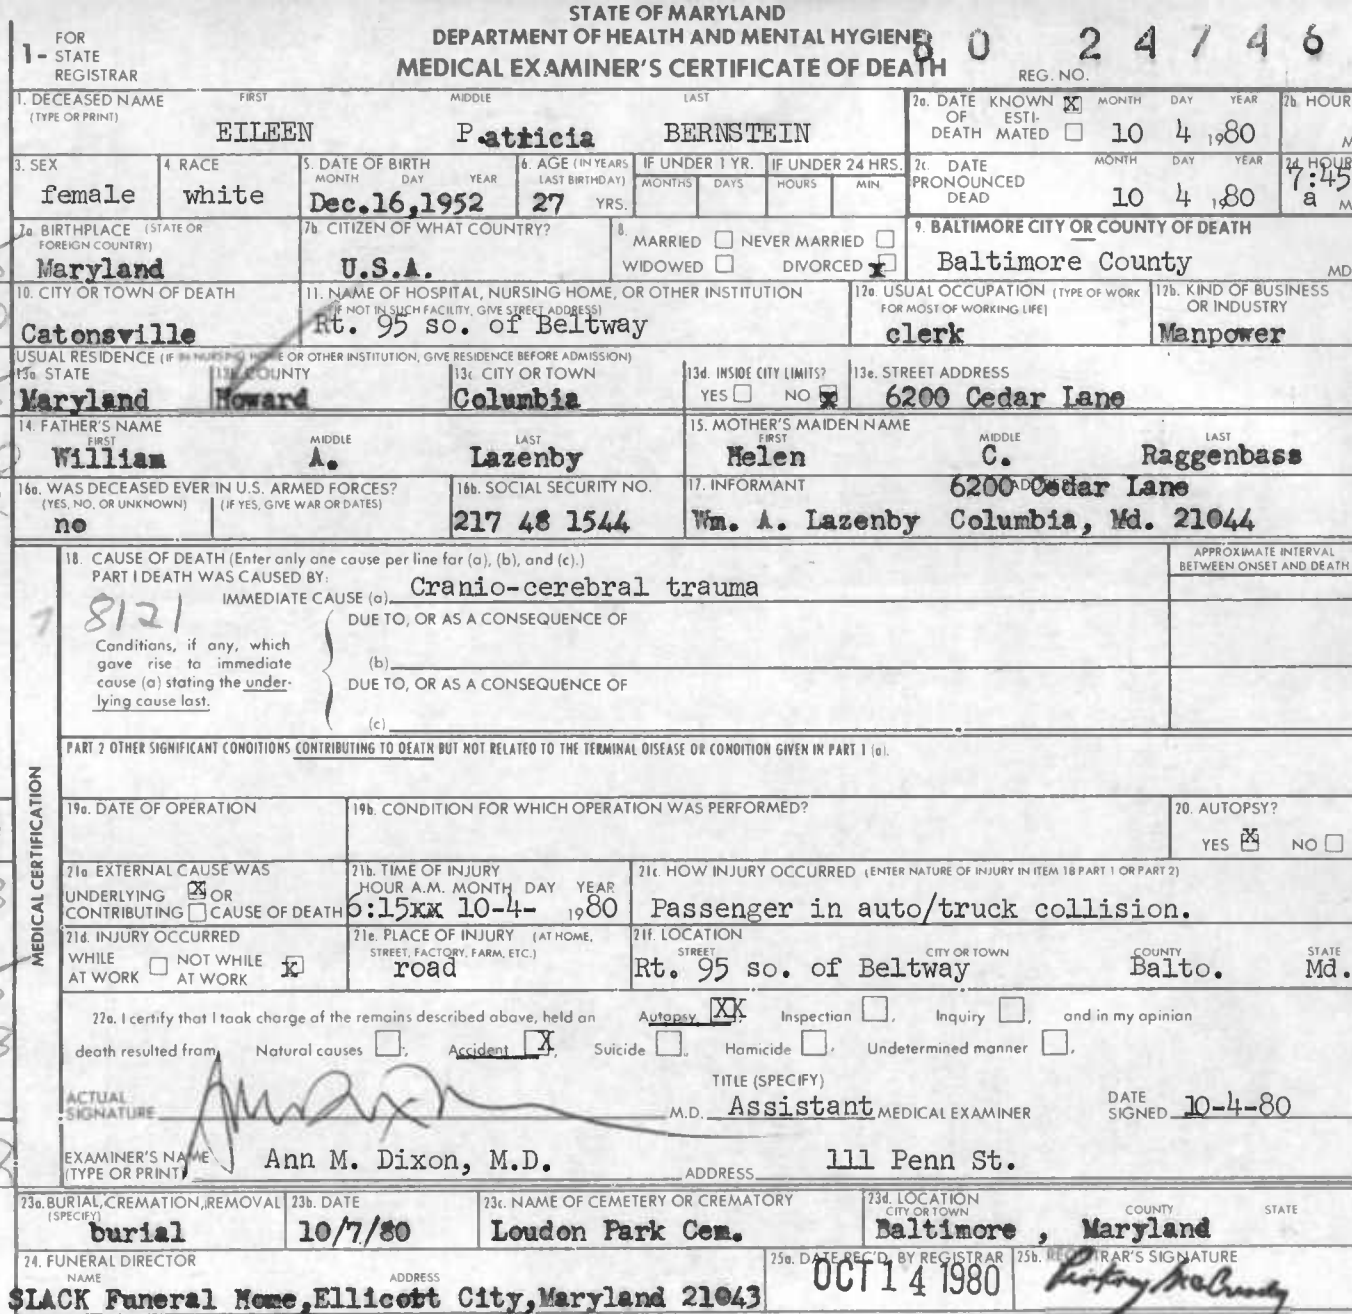 STATE OF MARYLAND
DEPARTMENT OF HEALTH AND MENTAL HYGIENE
MEDICAL EXAMINER'S CERTIFICATE OF DEATH
1- FOR STATE REGISTRAR
80 24746
REG. NO.
1. DECEASED NAME (TYPE OR PRINT) FIRST MIDDLE LAST
EILEEN P.atricia BERNSTEIN
2a. DATE OF DEATH KNOWN X ESTIMATED MONTH DAY YEAR 10 4 1980
2b. HOUR M
3. SEX female
4. RACE white
5. DATE OF BIRTH MONTH DAY YEAR Dec.16,1952
6. AGE (IN YEARS LAST BIRTHDAY) 27 YRS.
IF UNDER 1 YR. MONTHS DAYS
IF UNDER 24 HRS. HOURS MIN.
2c. DATE PRONOUNCED DEAD MONTH DAY YEAR 10 4 1980
2d. HOUR 7:45 a M
7a. BIRTHPLACE (STATE OR FOREIGN COUNTRY) Maryland
7b. CITIZEN OF WHAT COUNTRY? U.S.A.
8. MARRIED NEVER MARRIED
WIDOWED DIVORCED x
9. BALTIMORE CITY OR COUNTY OF DEATH
Baltimore County MD
10. CITY OR TOWN OF DEATH
Catonsville
11. NAME OF HOSPITAL, NURSING HOME, OR OTHER INSTITUTION
(IF NOT IN SUCH FACILITY, GIVE STREET ADDRESS)
Rt. 95 so. of Beltway
12a. USUAL OCCUPATION (TYPE OF WORK FOR MOST OF WORKING LIFE)
clerk
12b. KIND OF BUSINESS OR INDUSTRY
Manpower
USUAL RESIDENCE (IF IN NURSING HOME OR OTHER INSTITUTION, GIVE RESIDENCE BEFORE ADMISSION)
13a. STATE Maryland
13b. COUNTY Howard
13c. CITY OR TOWN Columbia
13d. INSIDE CITY LIMITS? YES NO x
13e. STREET ADDRESS 6200 Cedar Lane
14. FATHER'S NAME FIRST MIDDLE LAST
William A. Lazenby
15. MOTHER'S MAIDEN NAME FIRST MIDDLE LAST
Helen C. Raggenbass
16a. WAS DECEASED EVER IN U.S. ARMED FORCES?
(YES, NO, OR UNKNOWN) (IF YES, GIVE WAR OR DATES)
no
16b. SOCIAL SECURITY NO.
217 48 1544
17. INFORMANT ADDRESS
6200 Cedar Lane
Wm. A. Lazenby Columbia, Md. 21044
MEDICAL CERTIFICATION
18. CAUSE OF DEATH (Enter only one cause per line for (a), (b), and (c).)
PART I DEATH WAS CAUSED BY:
IMMEDIATE CAUSE (a) Cranio-cerebral trauma
APPROXIMATE INTERVAL BETWEEN ONSET AND DEATH
8121
Conditions, if any, which gave rise to immediate cause (a) stating the underlying cause last.
DUE TO, OR AS A CONSEQUENCE OF
(b)
DUE TO, OR AS A CONSEQUENCE OF
(c)
PART 2 OTHER SIGNIFICANT CONDITIONS CONTRIBUTING TO DEATH BUT NOT RELATED TO THE TERMINAL DISEASE OR CONDITION GIVEN IN PART 1 (a).
19a. DATE OF OPERATION
19b. CONDITION FOR WHICH OPERATION WAS PERFORMED?
20. AUTOPSY?
YES X NO
21a. EXTERNAL CAUSE WAS
UNDERLYING X OR
CONTRIBUTING CAUSE OF DEATH
21b. TIME OF INJURY
HOUR A.M. MONTH DAY YEAR
6:15xx 10-4- 1980
21c. HOW INJURY OCCURRED (ENTER NATURE OF INJURY IN ITEM 18 PART 1 OR PART 2)
Passenger in auto/truck collision.
21d. INJURY OCCURRED
WHILE AT WORK NOT WHILE AT WORK x
21e. PLACE OF INJURY (AT HOME, STREET, FACTORY, FARM, ETC.)
road
21f. LOCATION
STREET CITY OR TOWN COUNTY STATE
Rt. 95 so. of Beltway Balto. Md.
22a. I certify that I took charge of the remains described above, held an Autopsy XX, Inspection, Inquiry, and in my opinion
death resulted from Natural causes, Accident X, Suicide, Homicide, Undetermined manner.
ACTUAL SIGNATURE M.D.
TITLE (SPECIFY)
Assistant MEDICAL EXAMINER
DATE SIGNED 10-4-80
EXAMINER'S NAME (TYPE OR PRINT) Ann M. Dixon, M.D.
ADDRESS 111 Penn St.
23a. BURIAL, CREMATION, REMOVAL (SPECIFY)
burial
23b. DATE
10/7/80
23c. NAME OF CEMETERY OR CREMATORY
Loudon Park Cem.
23d. LOCATION CITY OR TOWN COUNTY STATE
Baltimore , Maryland
24. FUNERAL DIRECTOR
NAME ADDRESS
SLACK Funeral Home,Ellicott City,Maryland 21043
25a. DATE REC'D. BY REGISTRAR
OCT 14 1980
25b. REGISTRAR'S SIGNATURE